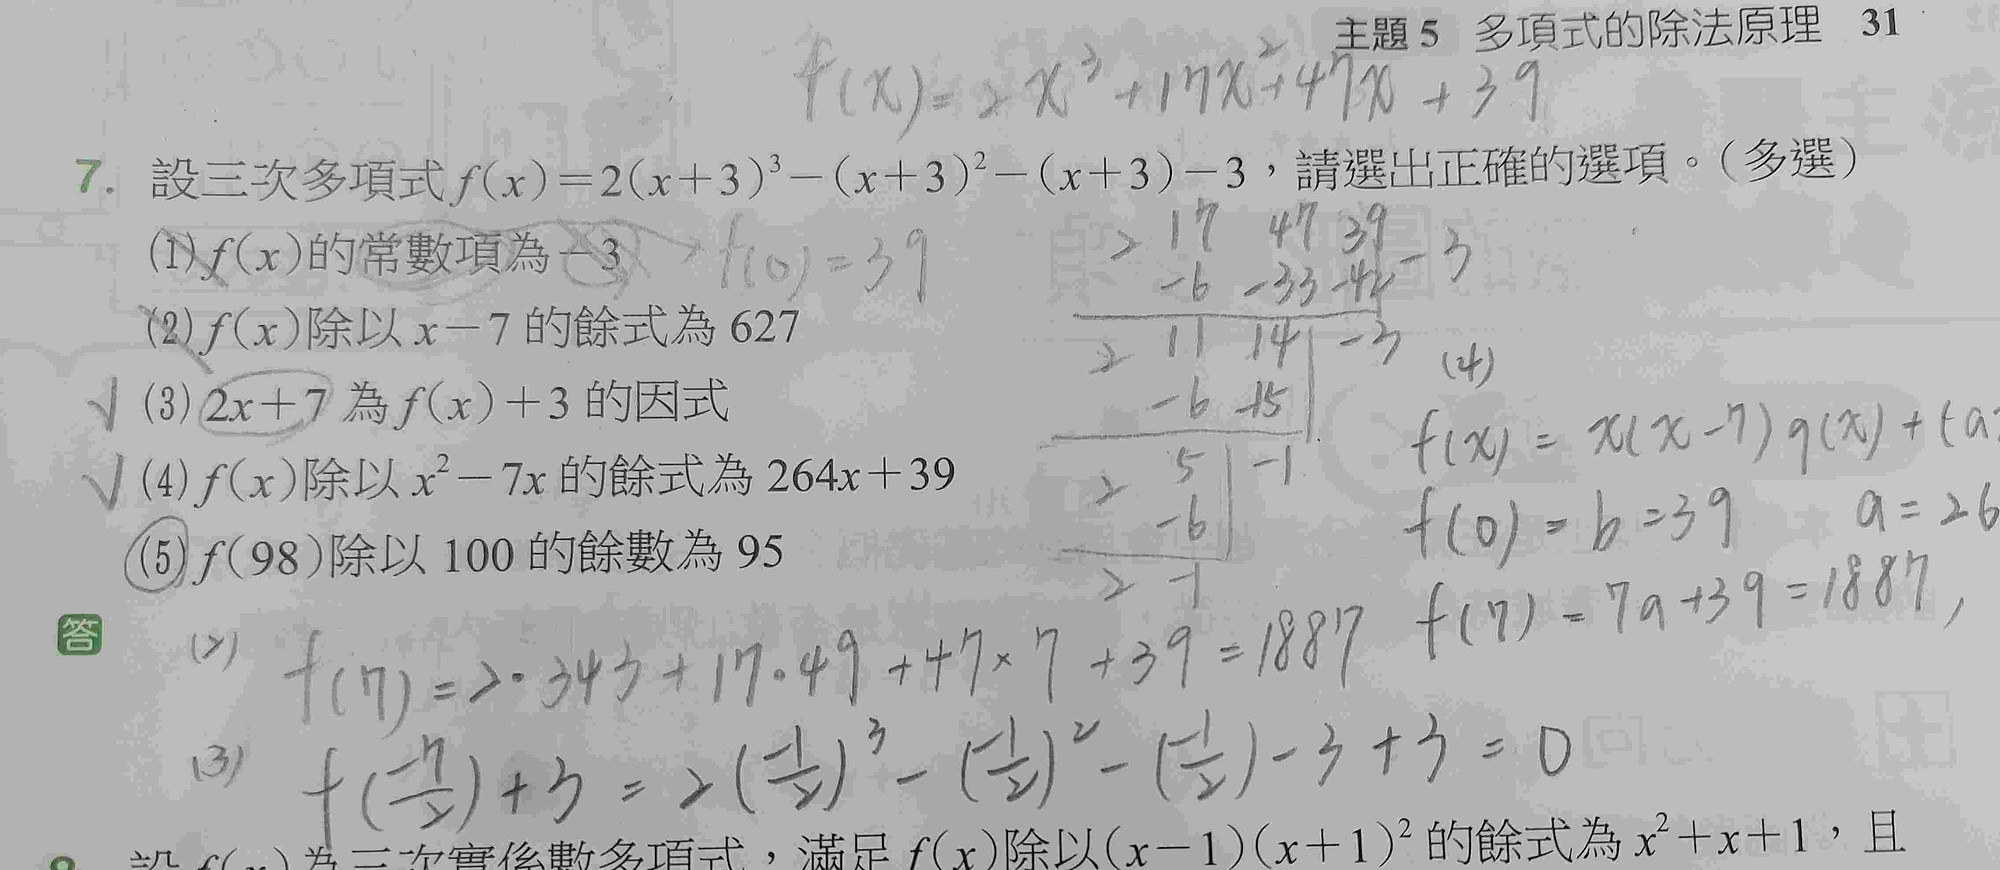 主題 5 多項式的除法原理 31
f(x)=2x³+17x²+47x+39
7. 設三次多項式 f(x)=2(x+3)³-(x+3)²-(x+3)-3,請選出正確的選項。(多選)
(1) f(x)的常數項為-3 f(0)=39
(2) f(x)除以 x-7 的餘式為 627
√ (3) 2x+7 為 f(x)+3 的因式
√ (4) f(x)除以 x²-7x 的餘式為 264x+39
(5) f(98)除以 100 的餘數為 95
2 17 47 39 -3
-6 -33 -42
2 11 14 -3
-6 -15
2 5 -1
-6
2 -1
(4)
f(x)=x(x-7)q(x)+(a
f(0)=b=39 a=26
f(7)=7a+39=1887,
答
(2) f(7)=2·343+17·49+47×7+39=1887
(3) f(-7/2)+3=2(-1/2)³-(-1/2)²-(-1/2)-3+3=0
8 設 f(x)為三次實係數多項式,滿足 f(x)除以(x-1)(x+1)² 的餘式為 x²+x+1,且